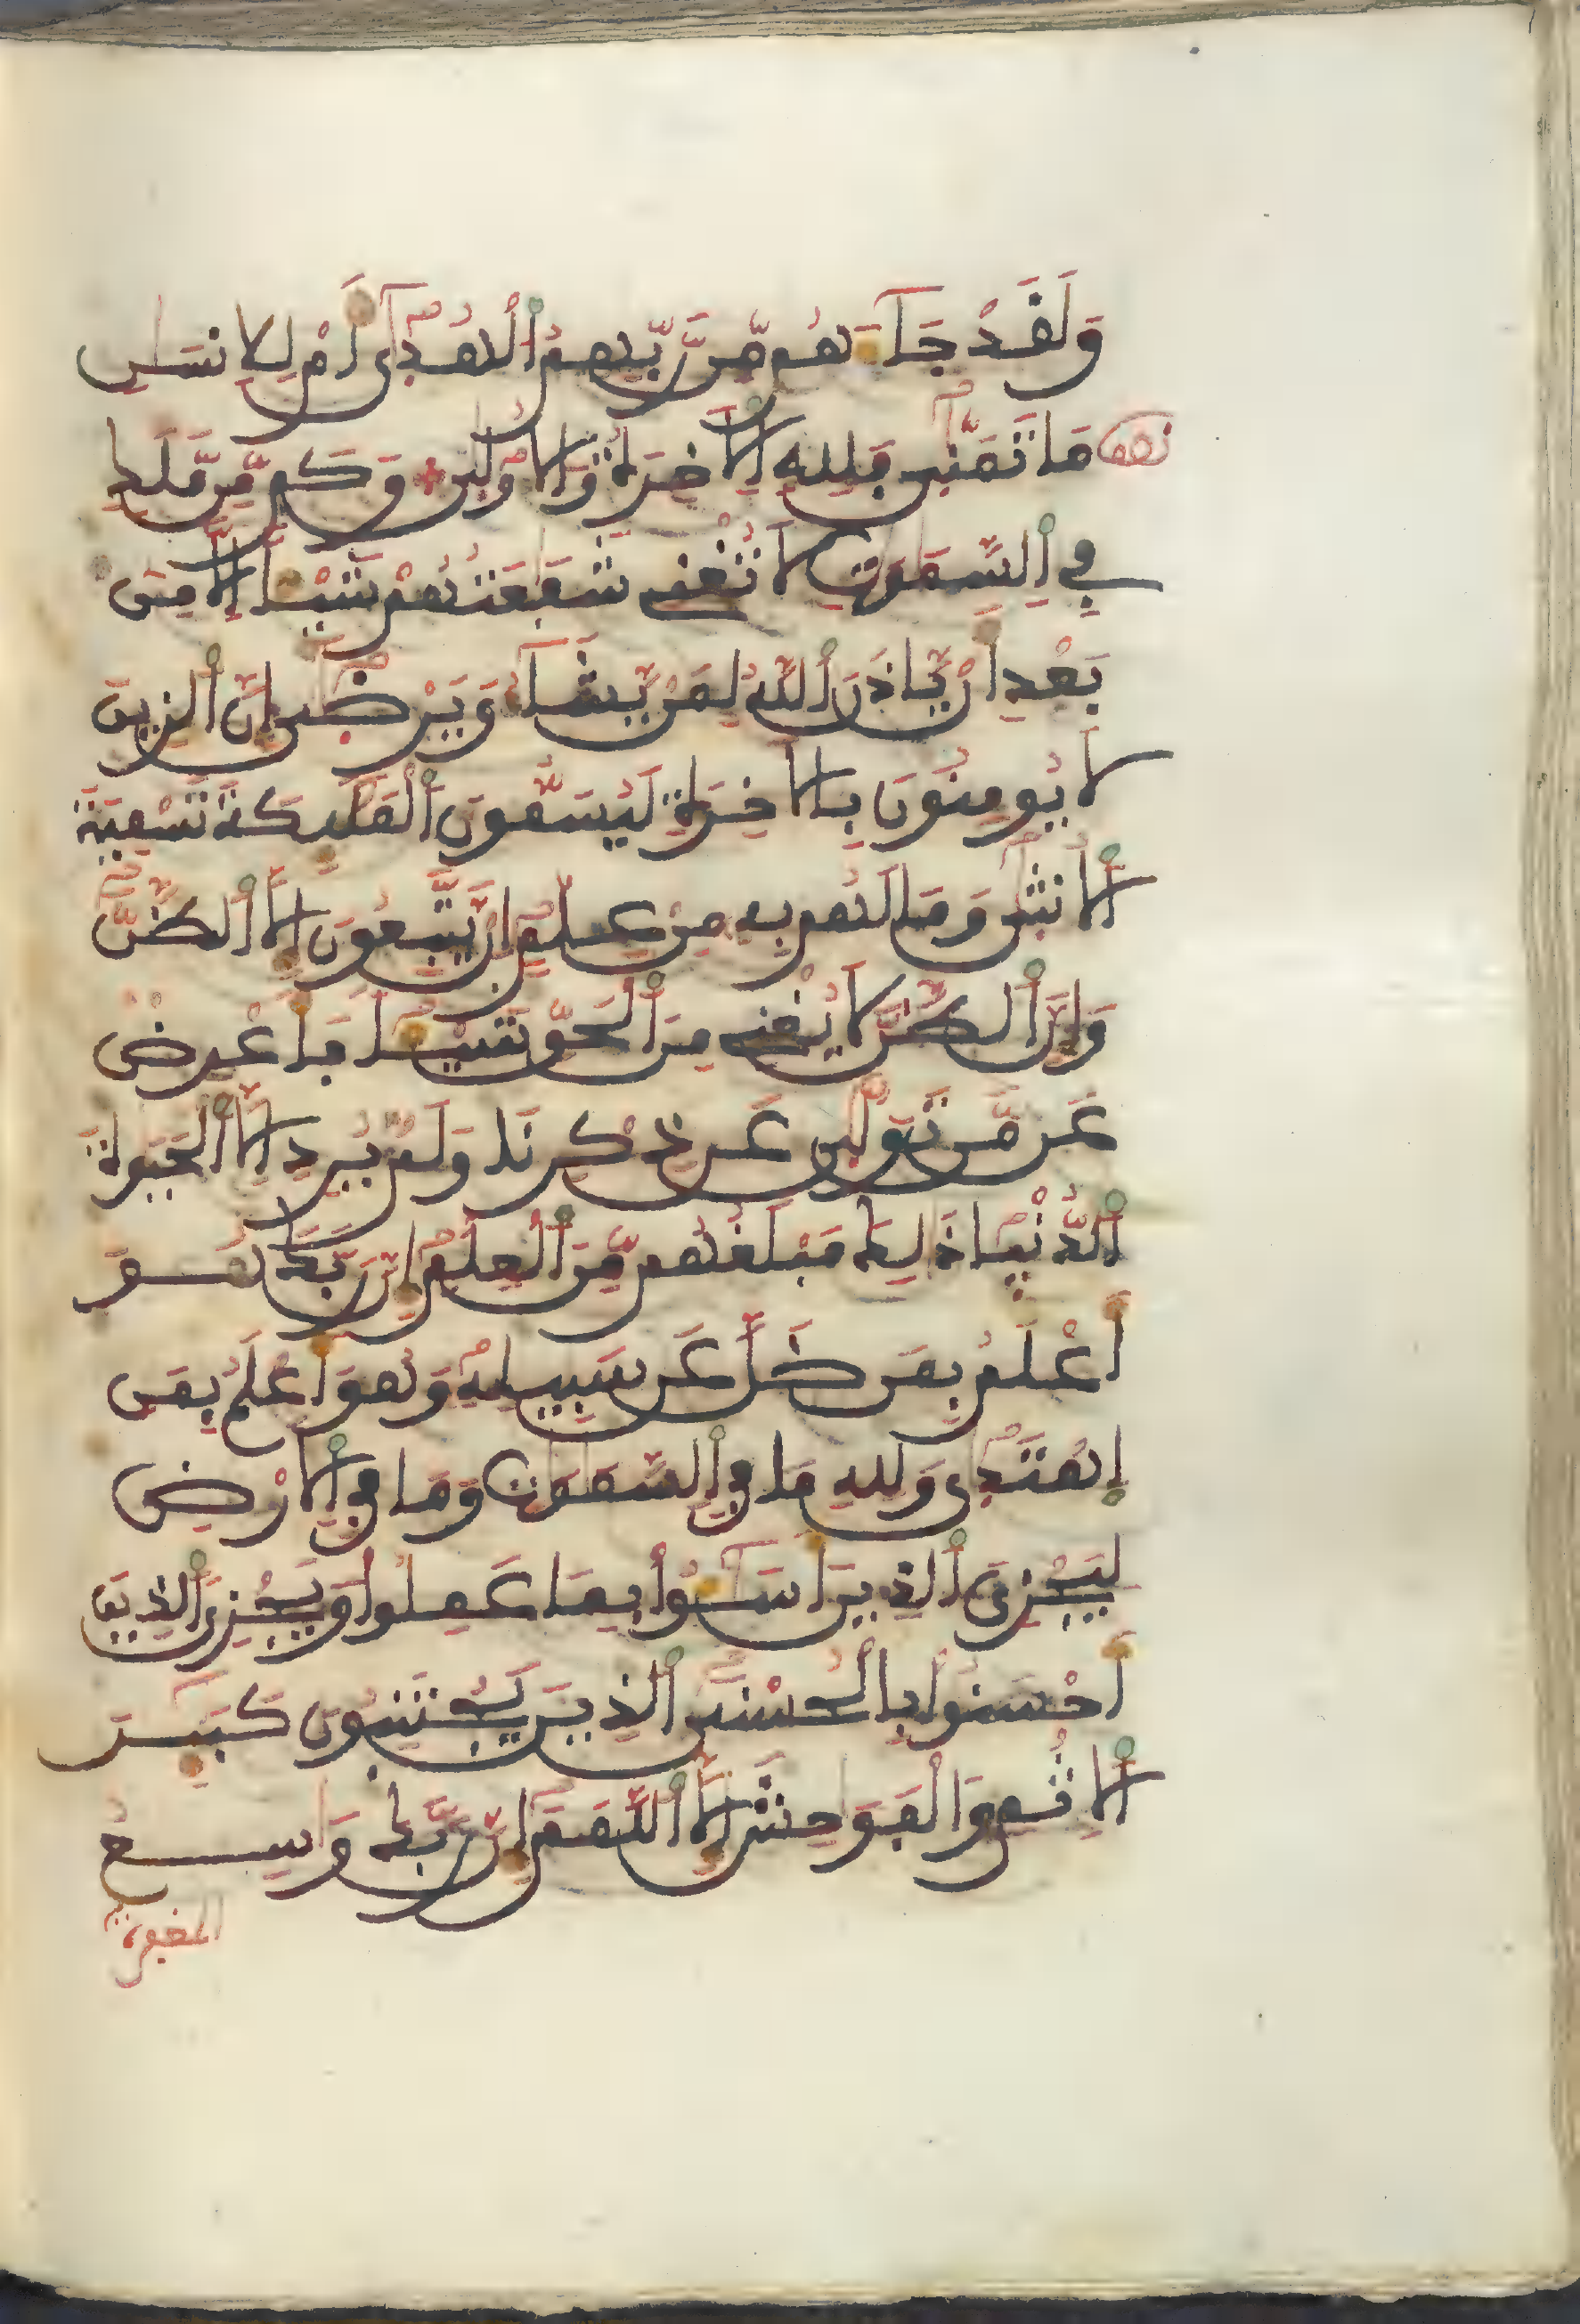 وَلَقَدْ جَآءَهُم مِّن رَّبِّهِمُ اُ۬لْهُد۪ىٰٓ أَمْ لِلِانسَٰنِ
مَا تَمَنّ۪ىٰ فَلِلهِ اِ۬لَاخِرَةُ وَالُاول۪ىٰ وَكَم مِّن مَّلَكٖ
فِي اِ۬لسَّمَٰوَٰتِ لَا تُغْنِي شَفَٰعَتُهُمْ شَيْـٔاً اِلَّا مِنۢ
بَعْدِ أَنْ يَّاذَنَ اَ۬للَّهُ لِمَنْ يَّشَآءُ وَيَرْض۪ىٰٓ إِنَّ اَ۬لذِينَ
لَا يُومِنُونَ بِالَاخِرَةِ لَيُسَمُّونَ اَ۬لْمَلَٰٓئِكَةَ تَسْمِيَةَ
اَ۬لُانث۪ىٰ وَمَا لَهُم بِهِۦ مِنْ عِلْمٍ اِنْ يَّتَّبِعُونَ إِلَّا اَ۬لظَّنَّ
وَإِنَّ اَ۬لظَّنَّ لَا يُغْنِي مِنَ اَ۬لْحَقِّ شَيْـٔاً فَأَعْرِضْ
عَن مَّن تَوَلّ۪ىٰ عَن ذِكْرِنَا وَلَمْ يُرِدِ اِلَّا اَ۬لْحَيَوٰةَ
اَ۬لدُّنْيَا ذَٰلِكَ مَبْلَغُهُم مِّنَ اَ۬لْعِلْمِ إِنَّ رَبَّكَ هُوَ
أَعْلَمُ بِمَن ضَلَّ عَن سَبِيلِهِۦ وَهُوَ أَعْلَمُ بِمَنِ
اِ۪هْتَد۪ىٰ وَلِلهِ مَا فِي اِ۬لسَّمَٰوَٰتِ وَمَا فِي اِ۬لَارْضِ
لِيَجْزِيَ اَ۬لذِينَ أَسَٰٓـُٔواْ بِمَا عَمِلُواْ وَيَجْزِيَ اَ۬لذِينَ
أَحْسَنُواْ بِالْحُسْنَى اَ۬لذِينَ يَجْتَنِبُونَ كَبَٰٓئِرَ
اَ۬لِاثْمِ وَالْفَوَٰحِشَ إِلَّا اَ۬للَّمَمَ إِنَّ رَبَّكَ وَٰسِعُ
المغفرة